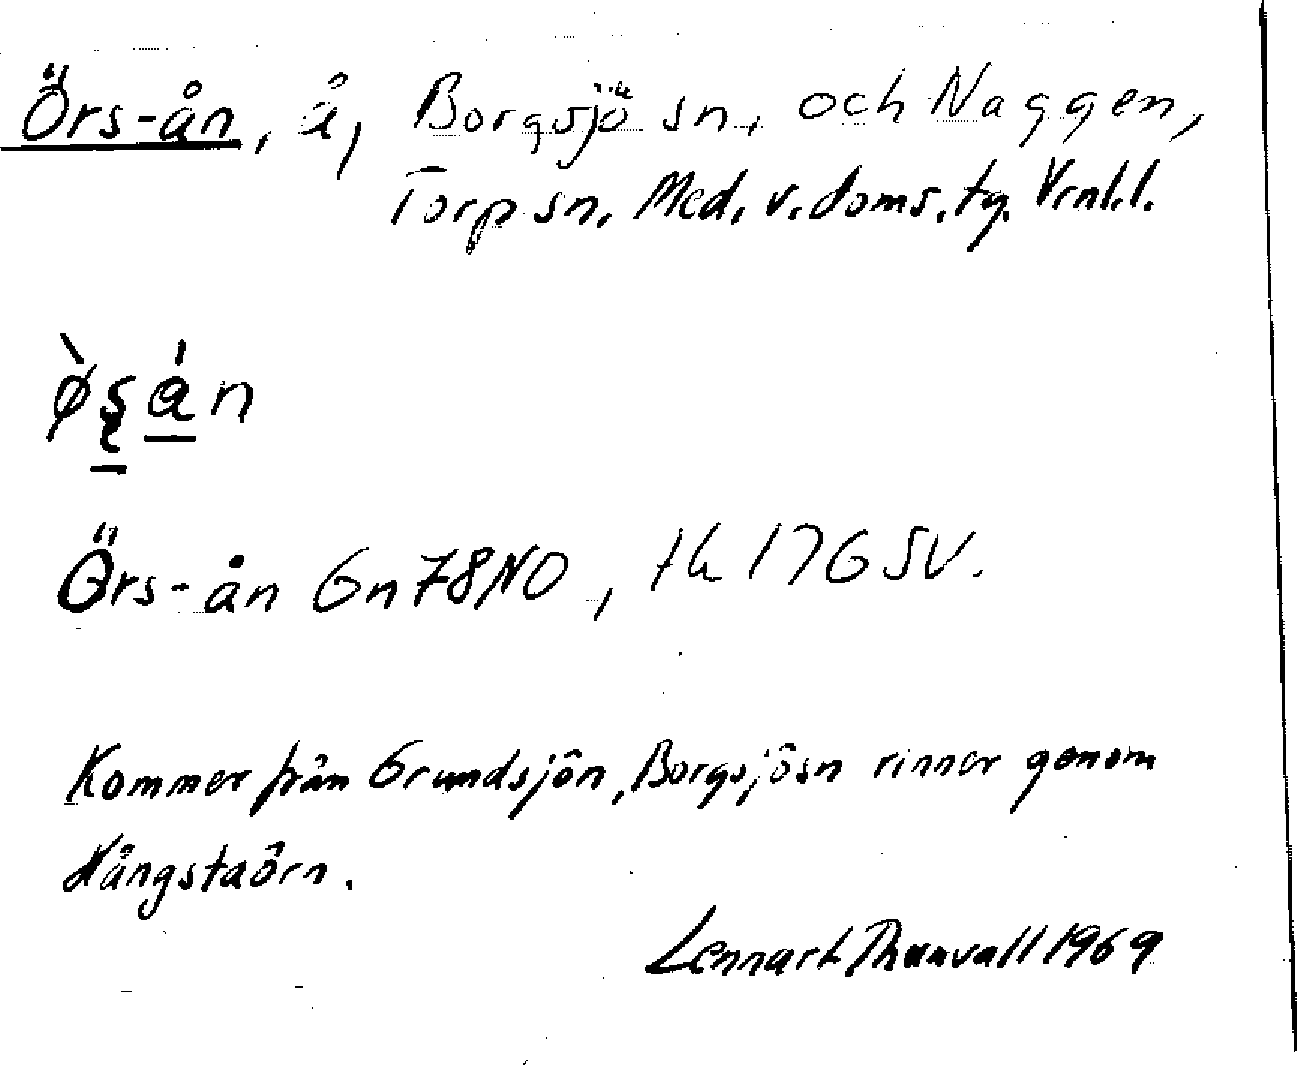 Örs-ån, å, Borgsjö sn, och Naggen,
Torp sn, Med. v. doms. tg. Vrnl.l.
Örs-ån Gn78NO, tk 17G SV.
Kommer från Grundsjön, Borgsjösn rinner genom
Hångstaörn.
Lennart Thunvall 1969